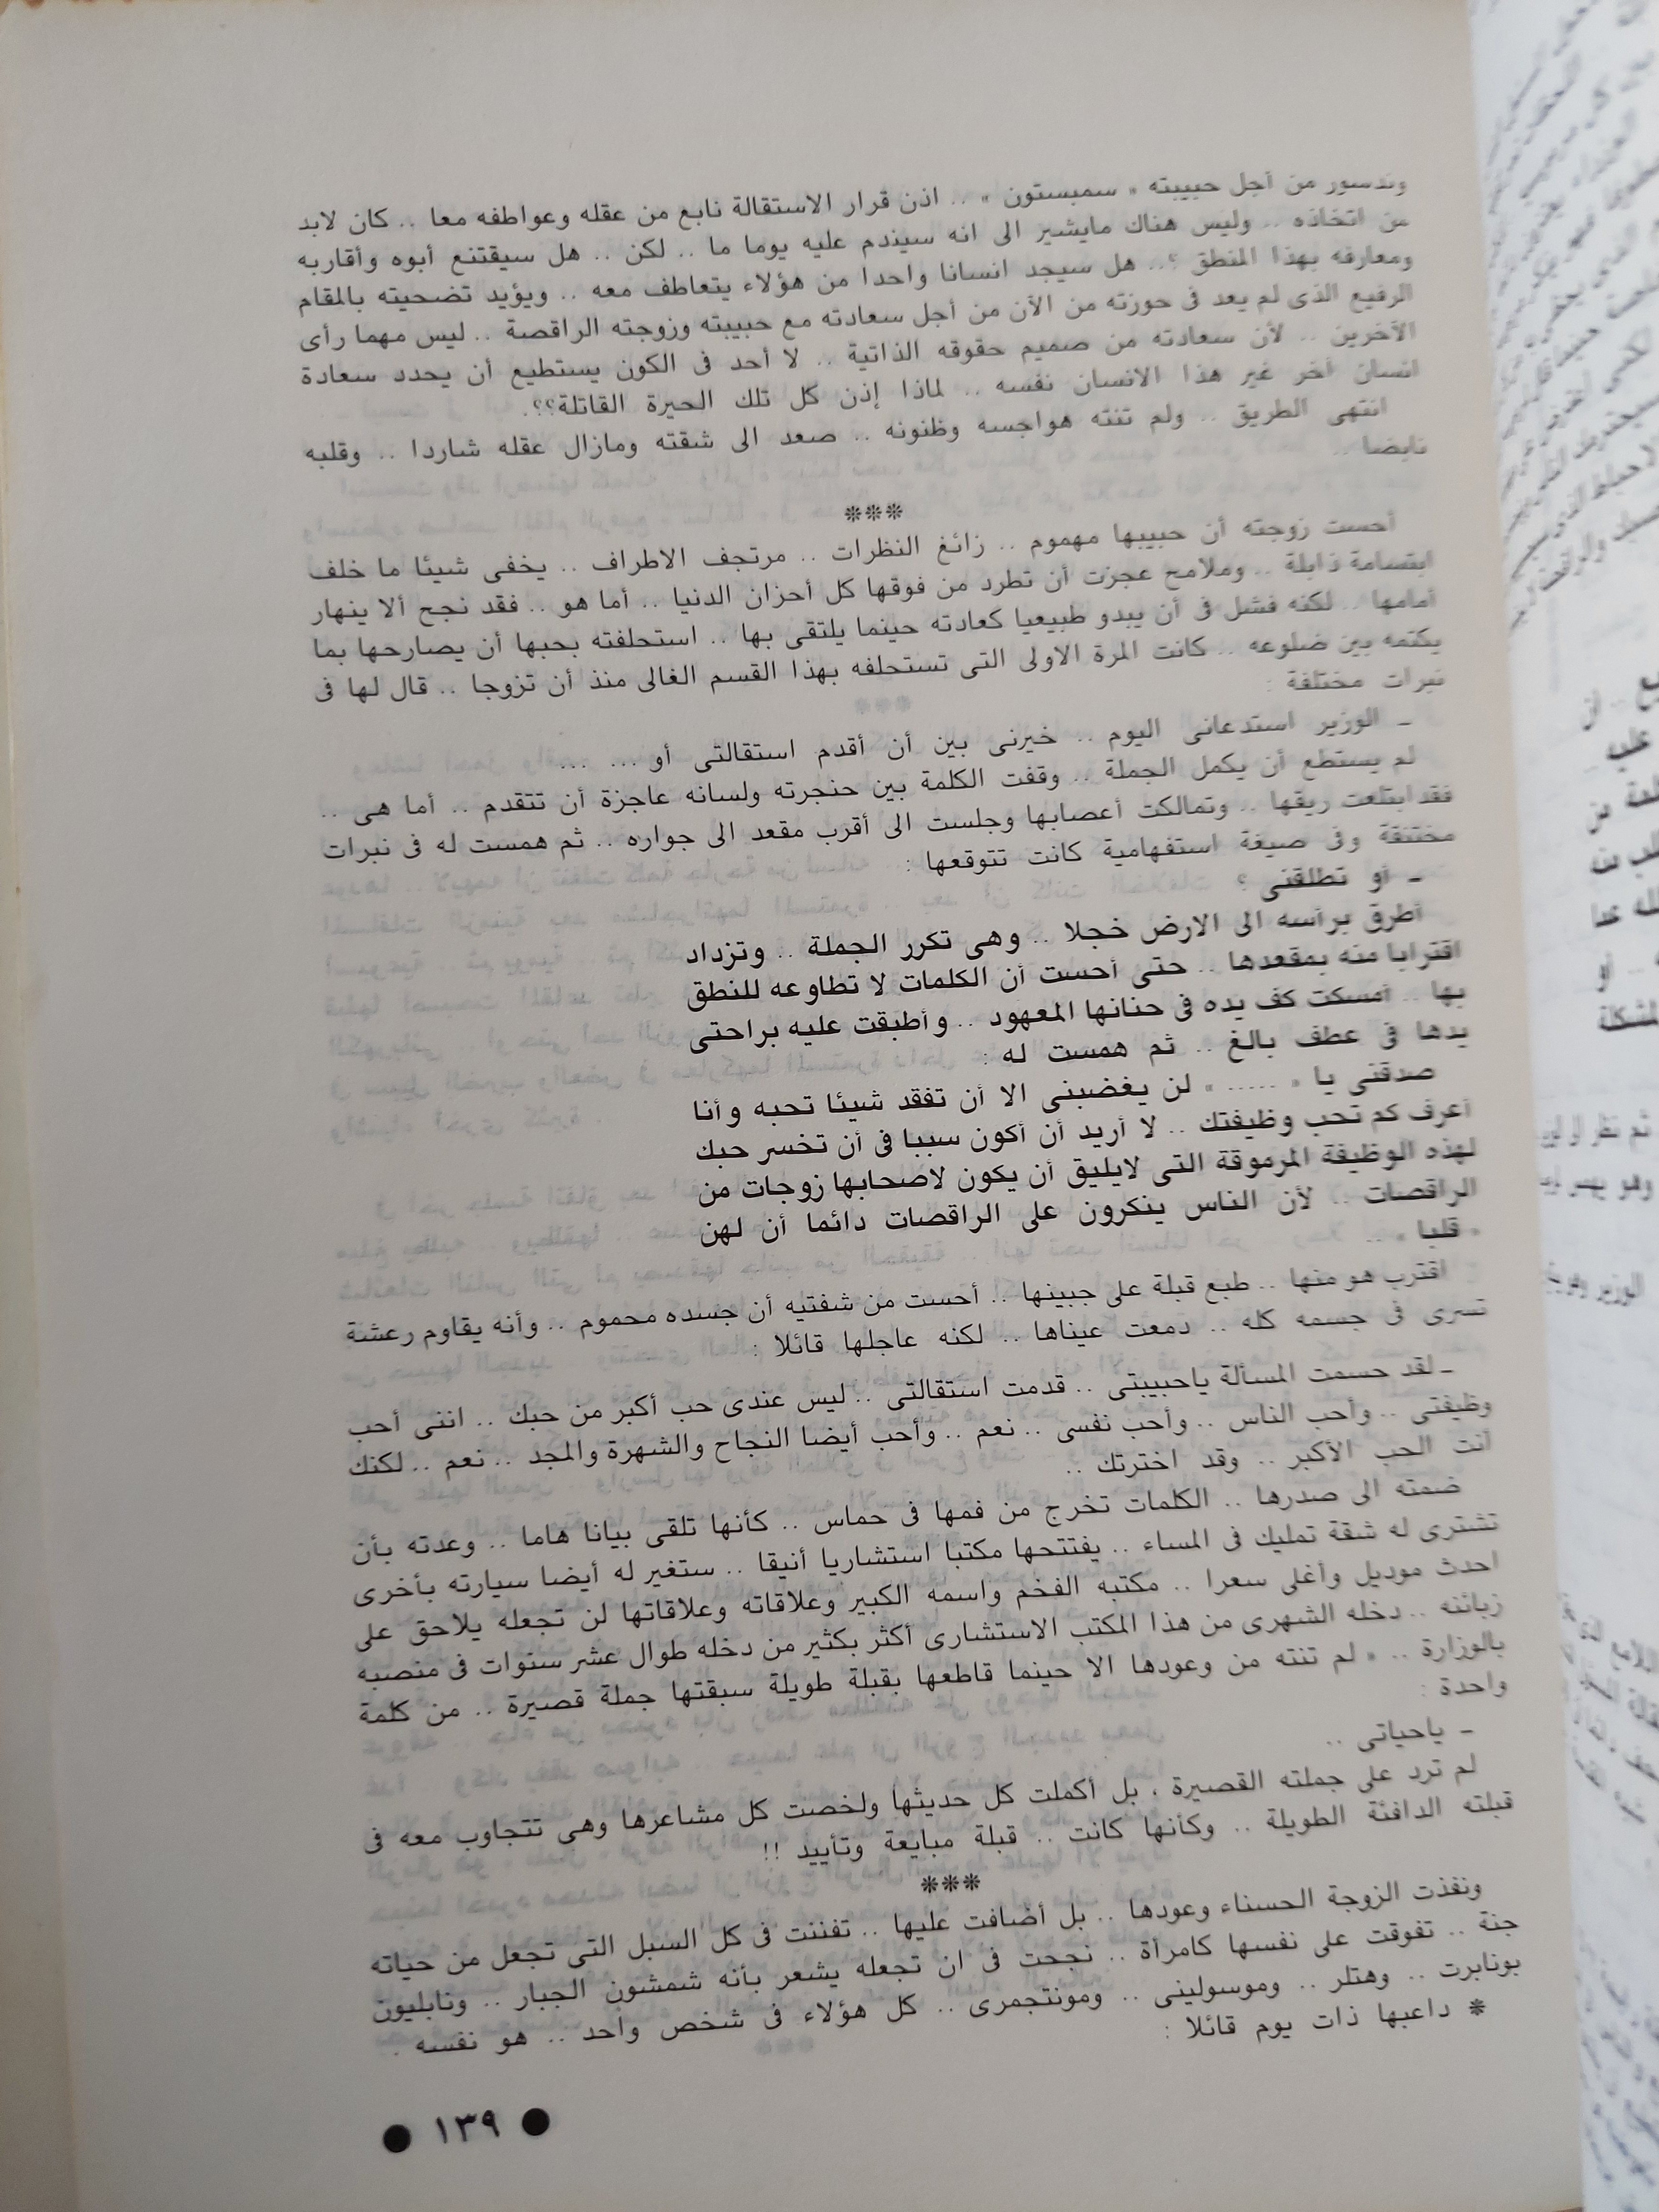 وندسور من أجل حبيبته « سمبستون » .. اذن قرار الاستقالة نابع من عقله وعواطفه معا .. كان لابد
من اتخاذه .. وليس هناك مايشير الى انه سيندم عليه يوما ما .. لكن .. هل سيقتنع أبوه وأقاربه
ومعارفه بهذا المنطق ؟.. هل سيجد انسانا واحدا من هؤلاء يتعاطف معه .. ويؤيد تضحيته بالمقام
الرفيع الذى لم يعد فى حوزته من الآن من أجل سعادته مع حبيبته وزوجته الراقصة .. ليس مهما رأى
الآخرين .. لأن سعادته من صميم حقوقه الذاتية .. لا أحد فى الكون يستطيع أن يحدد سعادة
انسان آخر غير هذا الانسان نفسه .. لماذا إذن كل تلك الحيرة القاتلة؟؟.
انتهى الطريق .. ولم تنته هواجسه وظنونه .. صعد الى شقته ومازال عقله شاردا .. وقلبه
نابضا ..
***
أحست زوجته أن حبيبها مهموم .. زائغ النظرات .. مرتجف الاطراف .. يخفى شيئا ما خلف
ابتسامة ذابلة .. وملامح عجزت أن تطرد من فوقها كل أحزان الدنيا .. أما هو .. فقد نجح ألا ينهار
أمامها .. لكنه فشل فى أن يبدو طبيعيا كعادته حينما يلتقى بها .. استحلفته بحبها أن يصارحها بما
يكتمه بين ضلوعه .. كانت المرة الاولى التى تستحلفه بهذا القسم الغالى منذ أن تزوجا .. قال لها فى
نبرات مختلفة :
ـ الوزير استدعانى اليوم .. خيرنى بين أن أقدم استقالتى أو ... ...
لم يستطع أن يكمل الجملة .. وقفت الكلمة بين حنجرته ولسانه عاجزة أن تتقدم .. أما هى ..
فقد ابتلعت ريقها .. وتمالكت أعصابها وجلست الى أقرب مقعد الى جواره .. ثم همست له فى نبرات
مختنقة وفى صيغة استفهامية كانت تتوقعها :
ـ أو تطلقنى ؟
أطرق برأسه الى الارض خجلا .. وهى تكرر الجملة .. وتزداد
اقترابا منه بمقعدها .. حتى أحست أن الكلمات لا تطاوعه للنطق
بها .. أمسكت كف يده فى حنانها المعهود .. وأطبقت عليه براحتى
يدها فى عطف بالغ .. ثم همست له :
صدقنى يا « ..... » لن يغضبنى الا أن تفقد شيئا تحبه وأنا
أعرف كم تحب وظيفتك .. لا أريد أن أكون سببا فى أن تخسر حبك
لهذه الوظيفة المرموقة التى لايليق أن يكون لاصحابها زوجات من
الراقصات .. لأن الناس ينكرون على الراقصات دائما أن لهن
« قلبا » ..
اقترب هو منها .. طبع قبلة على جبينها .. أحست من شفتيه أن جسده محموم .. وأنه يقاوم رعشة
تسرى فى جسمه كله .. دمعت عيناها .. لكنه عاجلها قائلا :
ـ لقد حسمت المسألة ياحبيبتى .. قدمت استقالتى .. ليس عندى حب أكبر من حبك .. اننى أحب
وظيفتى .. وأحب الناس .. وأحب نفسى .. نعم .. وأحب أيضا النجاح والشهرة والمجد .. نعم .. لكنك
أنت الحب الأكبر .. وقد اخترتك ..
ضمته الى صدرها .. الكلمات تخرج من فمها فى حماس .. كأنها تلقى بيانا هاما .. وعدته بأن
تشترى له شقة تمليك فى المساء .. يفتتحها مكتبا استشاريا أنيقا .. ستغير له أيضا سيارته بأخرى
احدث موديل وأغلى سعرا .. مكتبه الفخم واسمه الكبير وعلاقاته وعلاقاتها لن تجعله يلاحق على
زبائنه .. دخله الشهرى من هذا المكتب الاستشارى أكثر بكثير من دخله طوال عشر سنوات فى منصبه
بالوزارة .. » لم تنته من وعودها الا حينما قاطعها بقبلة طويلة سبقتها جملة قصيرة .. من كلمة
واحدة :
ـ ياحياتى ..
لم ترد على جملته القصيرة ، بل أكملت كل حديثها ولخصت كل مشاعرها وهى تتجاوب معه فى
قبلته الدافئة الطويلة .. وكأنها كانت .. قبلة مبايعة وتأييد !!
***
ونفذت الزوجة الحسناء وعودها .. بل أضافت عليها .. تفننت فى كل السبل التى تجعل من حياته
جنة .. تفوقت على نفسها كامرأة .. نجحت فى ان تجعله يشعر بأنه شمشون الجبار .. ونابليون
بونابرت .. وهتلر .. وموسولينى .. ومونتجمرى .. كل هؤلاء فى شخص واحد .. هو نفسه .
* داعبها ذات يوم قائلا :
● ١٣٩ ●